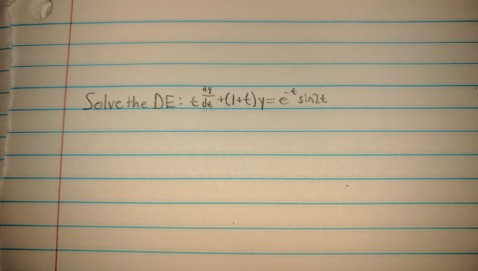 Solve the DE: t dy/dt +(1+t)y=e^-t sin2t